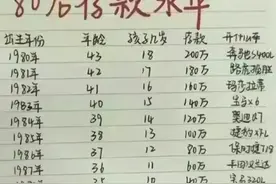 80后存款水平
出生年份 年龄 孩子几岁 存款 开什么车
1980年 43 18 200万 奔驰S400L
1981年 42 17 180万 路虎揽胜
1982年 41 16 160万 玛莎拉蒂
1983年 40 15 140万 宝马x6
1984年 39 14 120万 奥迪Q7
1985年 38 13 100万 捷豹XFL
1986年 37 12 80万 保时捷718
1987年 36 11 60万
35 10 320L